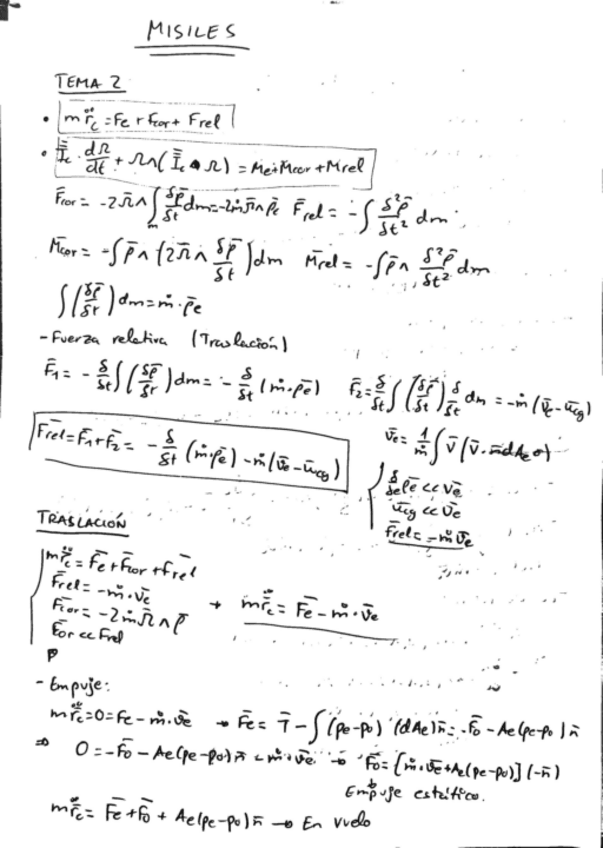 MISILES
TEMA 2
• m r̈c = Fe + Fcor + Frel
• Īc · dΩ/dt + Ω∧(Īc • Ω) = Me + Mcor + Mrel
F̄cor = -2Ω̄∧∫m δρ̄/δt dm = -2ṁΩ̄∧ρ̄e   F̄rel = -∫ δ²ρ̄/δt² dm
M̄cor = -∫ρ̄∧(2Ω̄∧ δρ̄/δt)dm   M̄rel = -∫ρ̄∧ δ²ρ̄/δt² dm
∫(δρ̄/δt)dm = ṁ·ρ̄e
- Fuerza relativa (Traslación)
F̄1 = - δ/δt ∫(δρ̄/δt)dm = - δ/δt (ṁ·ρ̄e)   F̄2 = δ/δt ∫(δρ̄/δt) δ/δt dm = -ṁ(v̄e - ūcg)
v̄e = 1/ṁ ∫ v̄(v̄·n̄dAeσ)
F̄rel = F̄1 + F̄2 = - δ/δt (ṁ·ρ̄e) - ṁ(v̄e - ūcg)
δ/δt ρ̄e << v̄e
ūcg << v̄e
F̄rel = -ṁv̄e
TRASLACIÓN
m r̈c = F̄e + F̄cor + F̄rel
F̄rel = -ṁ·v̄e
F̄cor = -2ṁΩ̄∧ρ̄   → m r̈c = F̄e - ṁ·v̄e
Fcor << Frel
- Empuje:
m r̈c = 0 = Fe - ṁ·v̄e → F̄e = T̄ - ∫(pe-po)(dAe)n̄ = -F̄o - Ae(pe-po)n̄
⇒ 0 = -F̄o - Ae(pe-po)n̄ - ṁ·v̄e → F̄o = [ṁ·v̄e + Ae(pe-po)](-n̄)
Empuje estático.
m r̈c = F̄e + F̄o + Ae(pe-po)n̄ → En vuelo